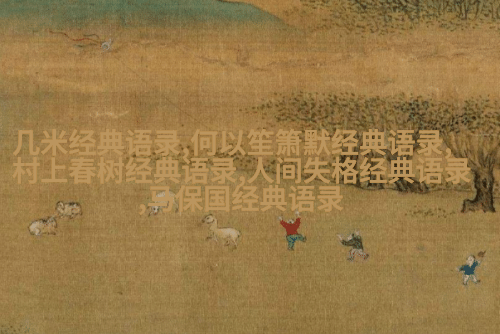 几米经典语录,何以笙箫默经典语录,
村上春树经典语录,人间失格经典语录
保国经典语录